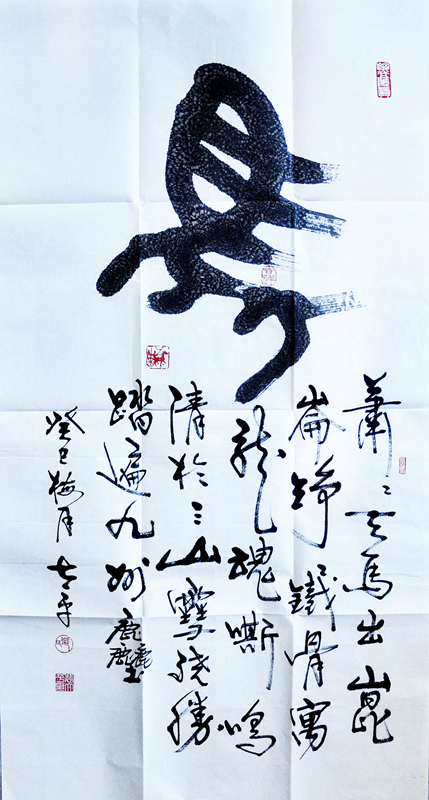 馬
蕭蕭天馬出崑
崙錚錚鐵骨寓
龍魂嘶鳴
清於三山
踏遍九州塵
癸巳梅月